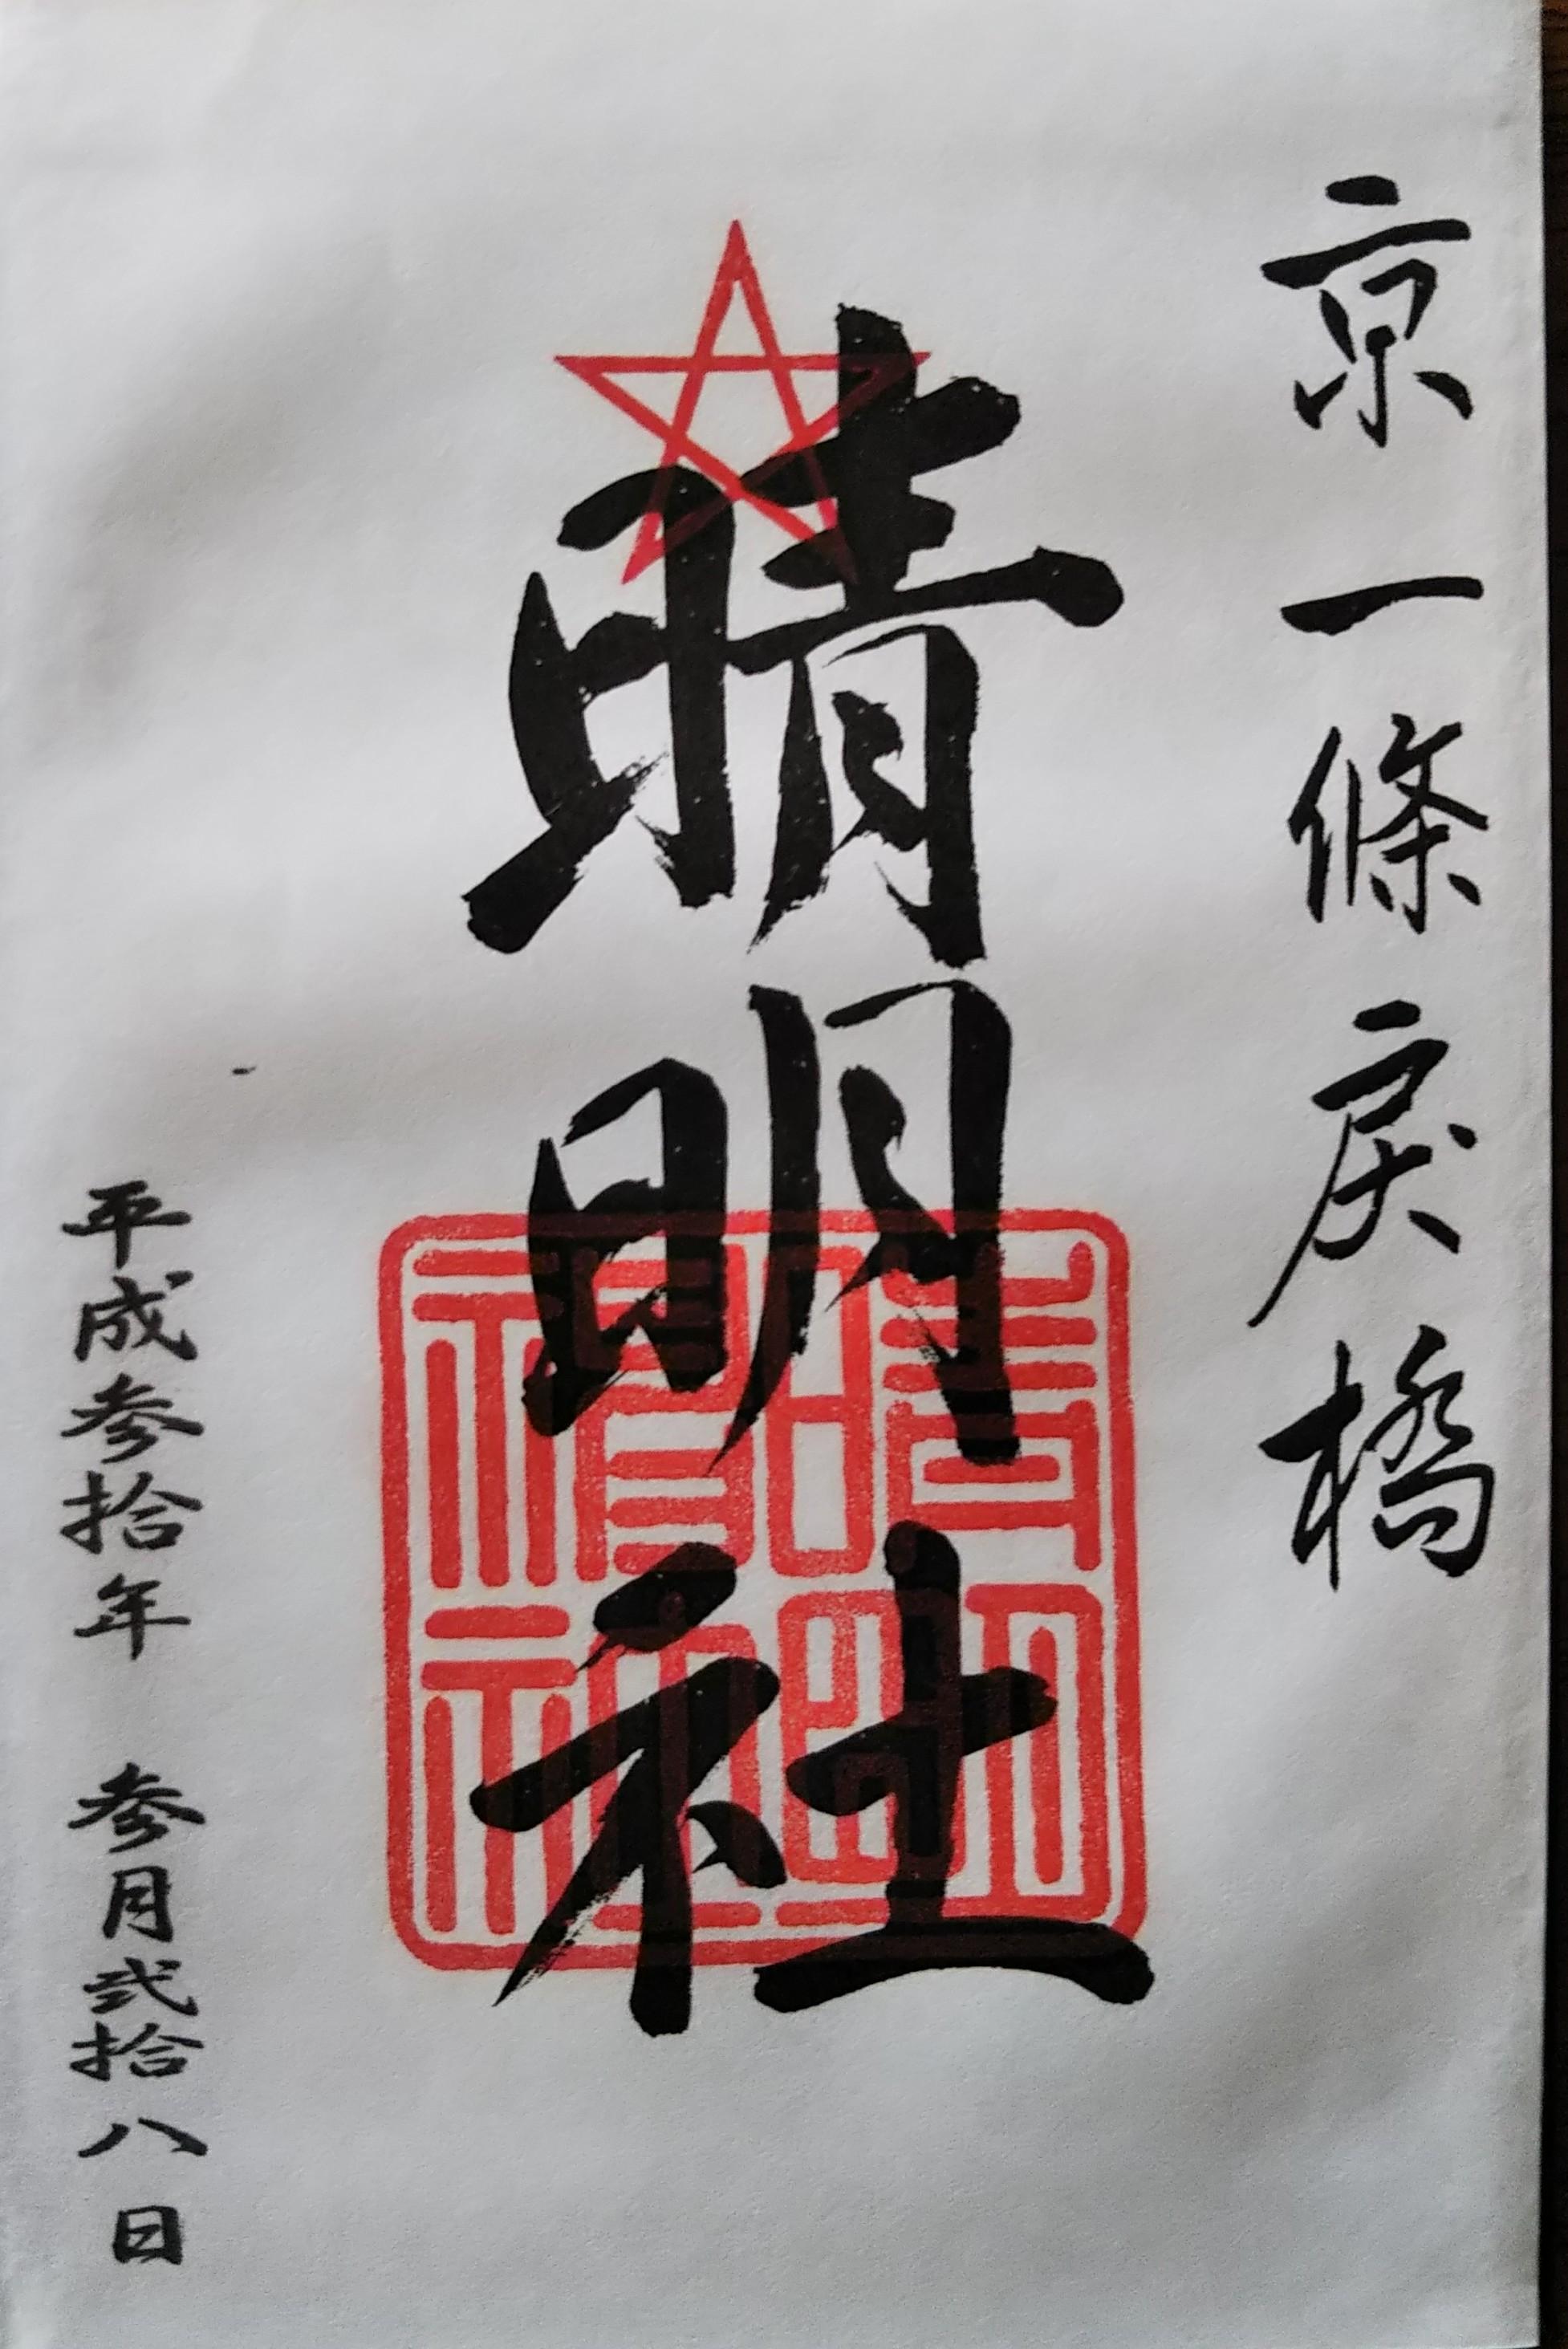 京一條戻橋
晴明社
平成参拾年 参月弐拾八日